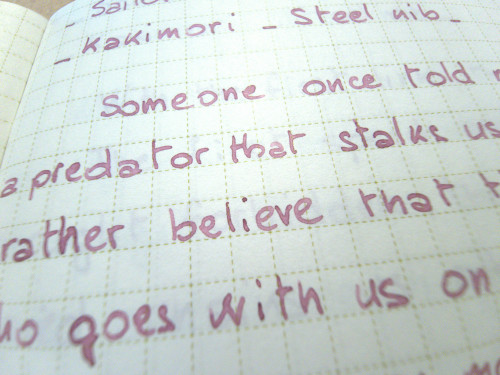 - Sailor
- Kakimori - Steel nib -
Someone once told
a predator that stalks us
rather believe that
who goes with us on